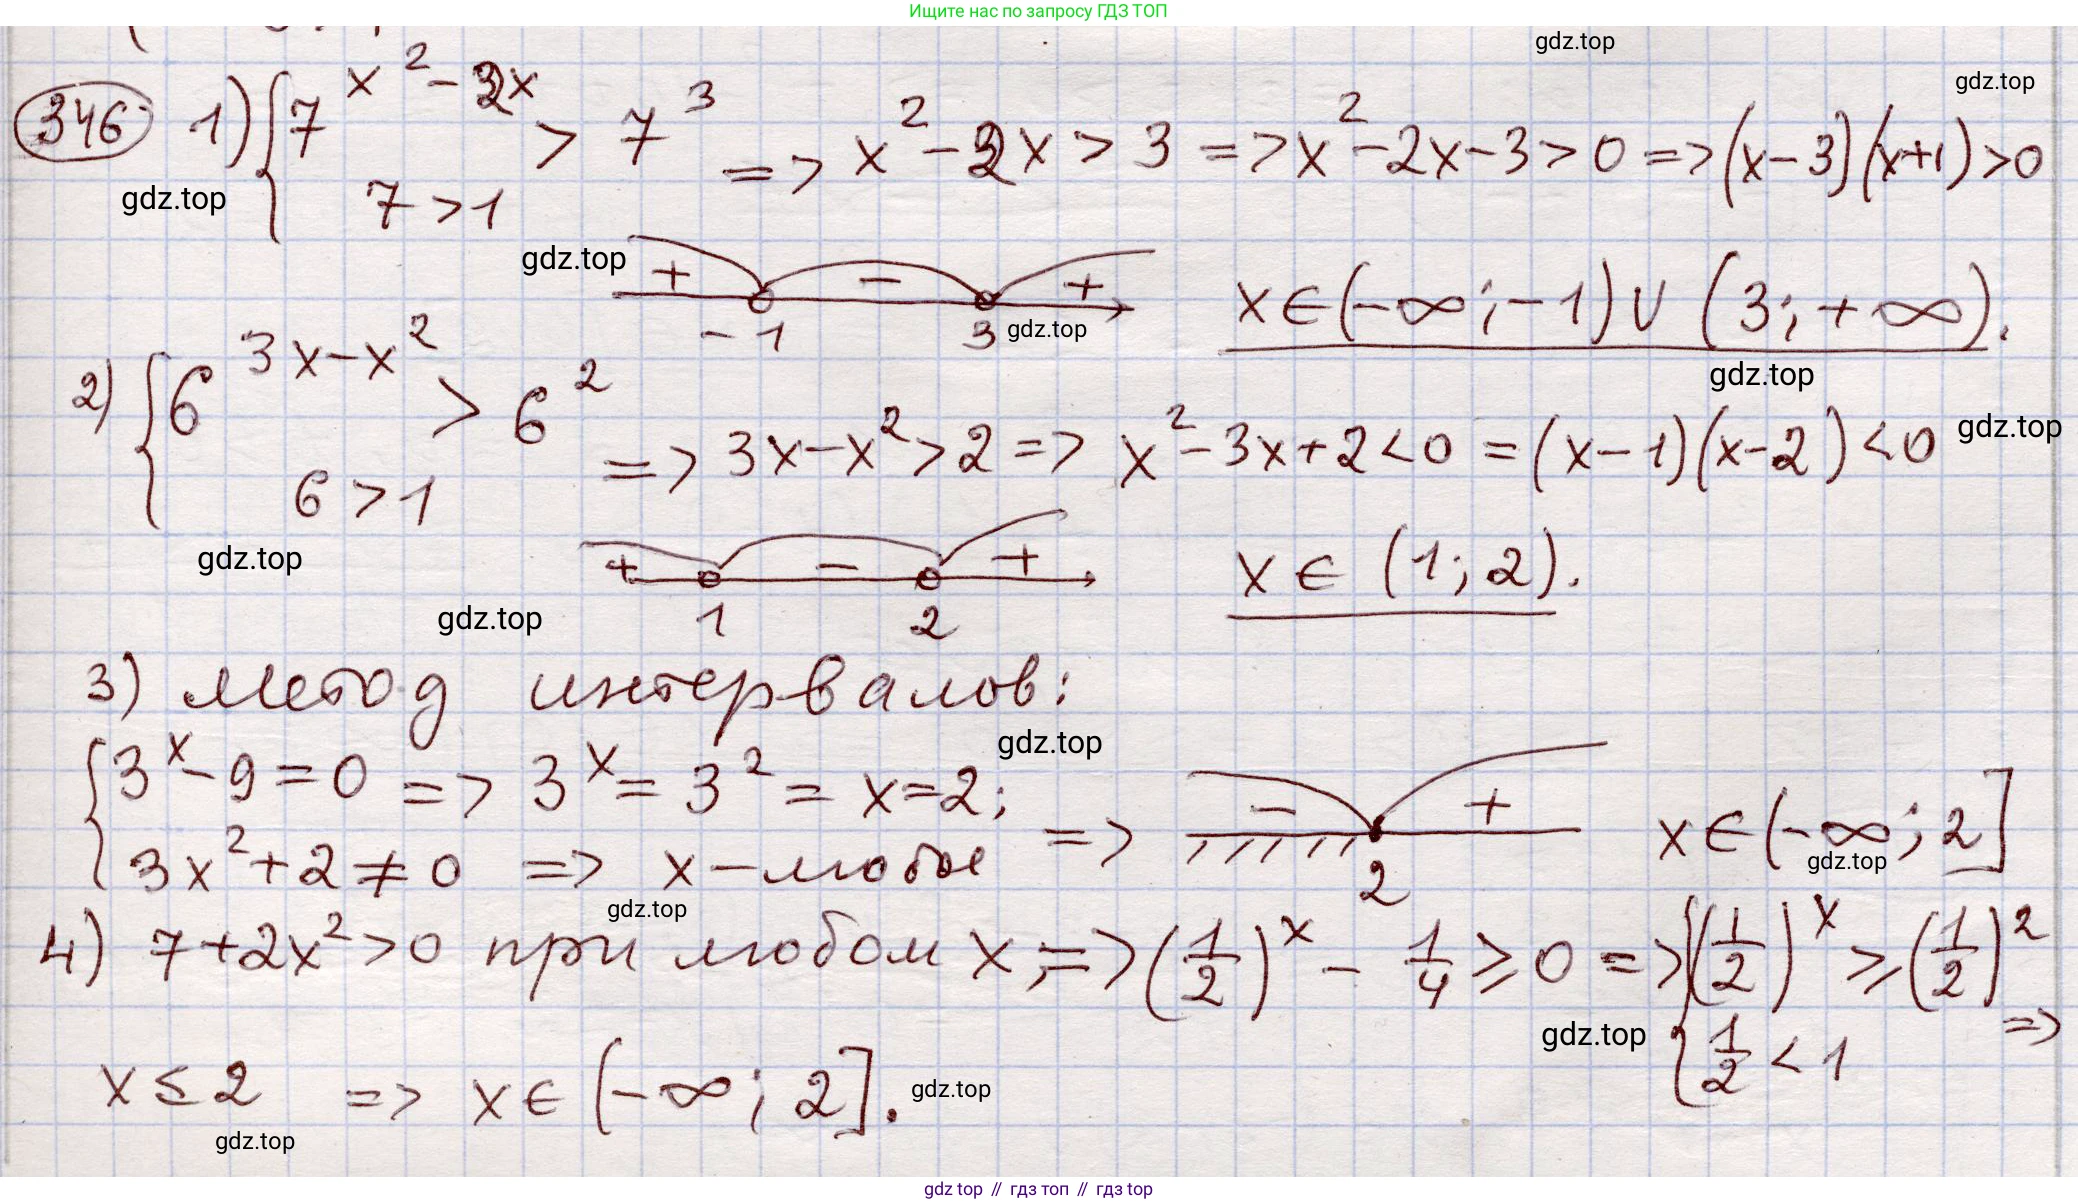 Ищите нас по запросу ГДЗ ТОП
gdz.top
gdz.top
346 1) { 7^(x²-2x) > 7³ => x²-2x > 3 => x²-2x-3 > 0 => (x-3)(x+1) > 0
7 > 1
gdz.top
gdz.top
+ - +
-1 3
gdz.top
x∈(-∞;-1)∪(3;+∞).
gdz.top
2) { 6^(3x-x²) > 6² => 3x-x² > 2 => x²-3x+2<0 = (x-1)(x-2)<0
gdz.top
6 > 1
gdz.top
+ - +
1 2
x∈(1;2).
gdz.top
3) метод интервалов:
gdz.top
{ 3^x-9=0 => 3^x = 3² = x=2;
3x²+2≠0 => x-любое
=> - + 
2
x∈(-∞;2]
gdz.top
gdz.top
4) 7+2x²>0 при любом x; => (1/2)^x - 1/4 ⩾ 0 => { (1/2)^x ⩾ (1/2)²
1/2 < 1 =>
gdz.top
x ≤ 2 => x∈(-∞;2].
gdz.top
gdz.top
gdz top // гдз топ // гдз top